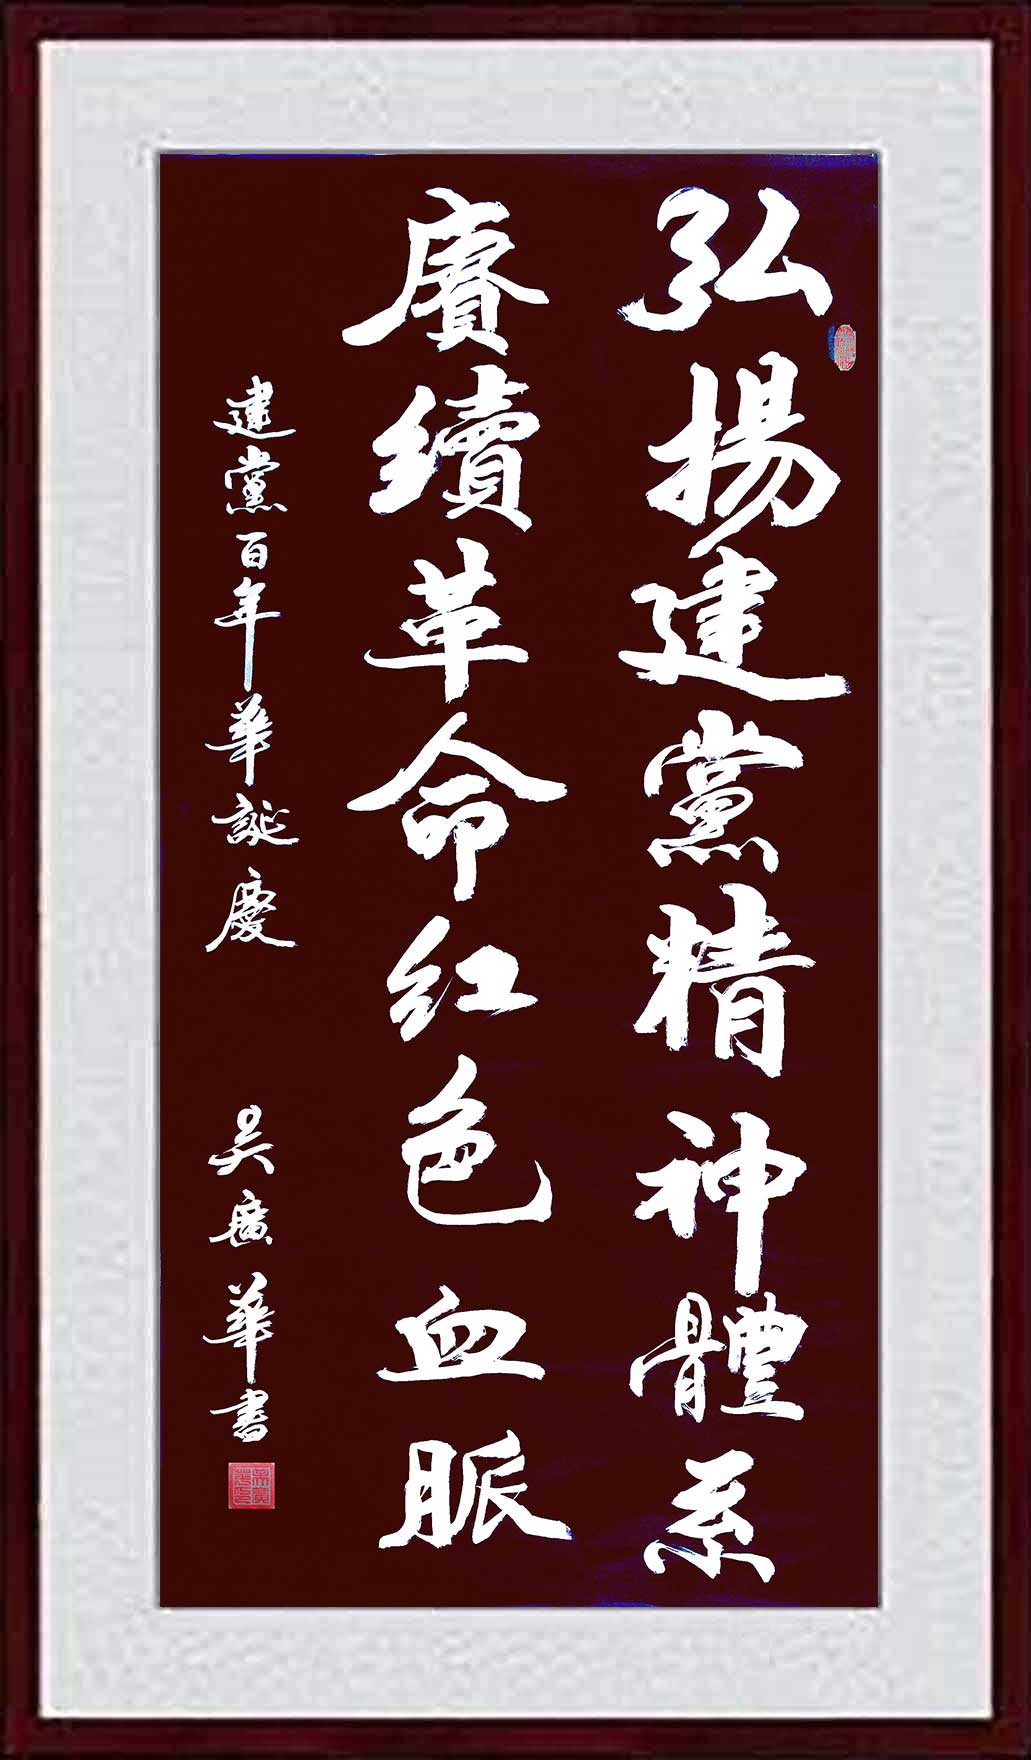 弘揚建黨精神體系
賡續革命红色血脈
建黨百年華誕慶 吴廣華書